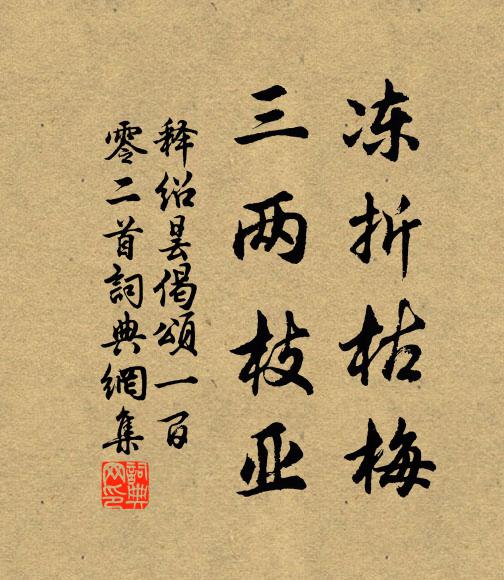 冻折枯梅
三两枝亚
释绍昙偈颂一百
零二首词典網集
詞典
网印